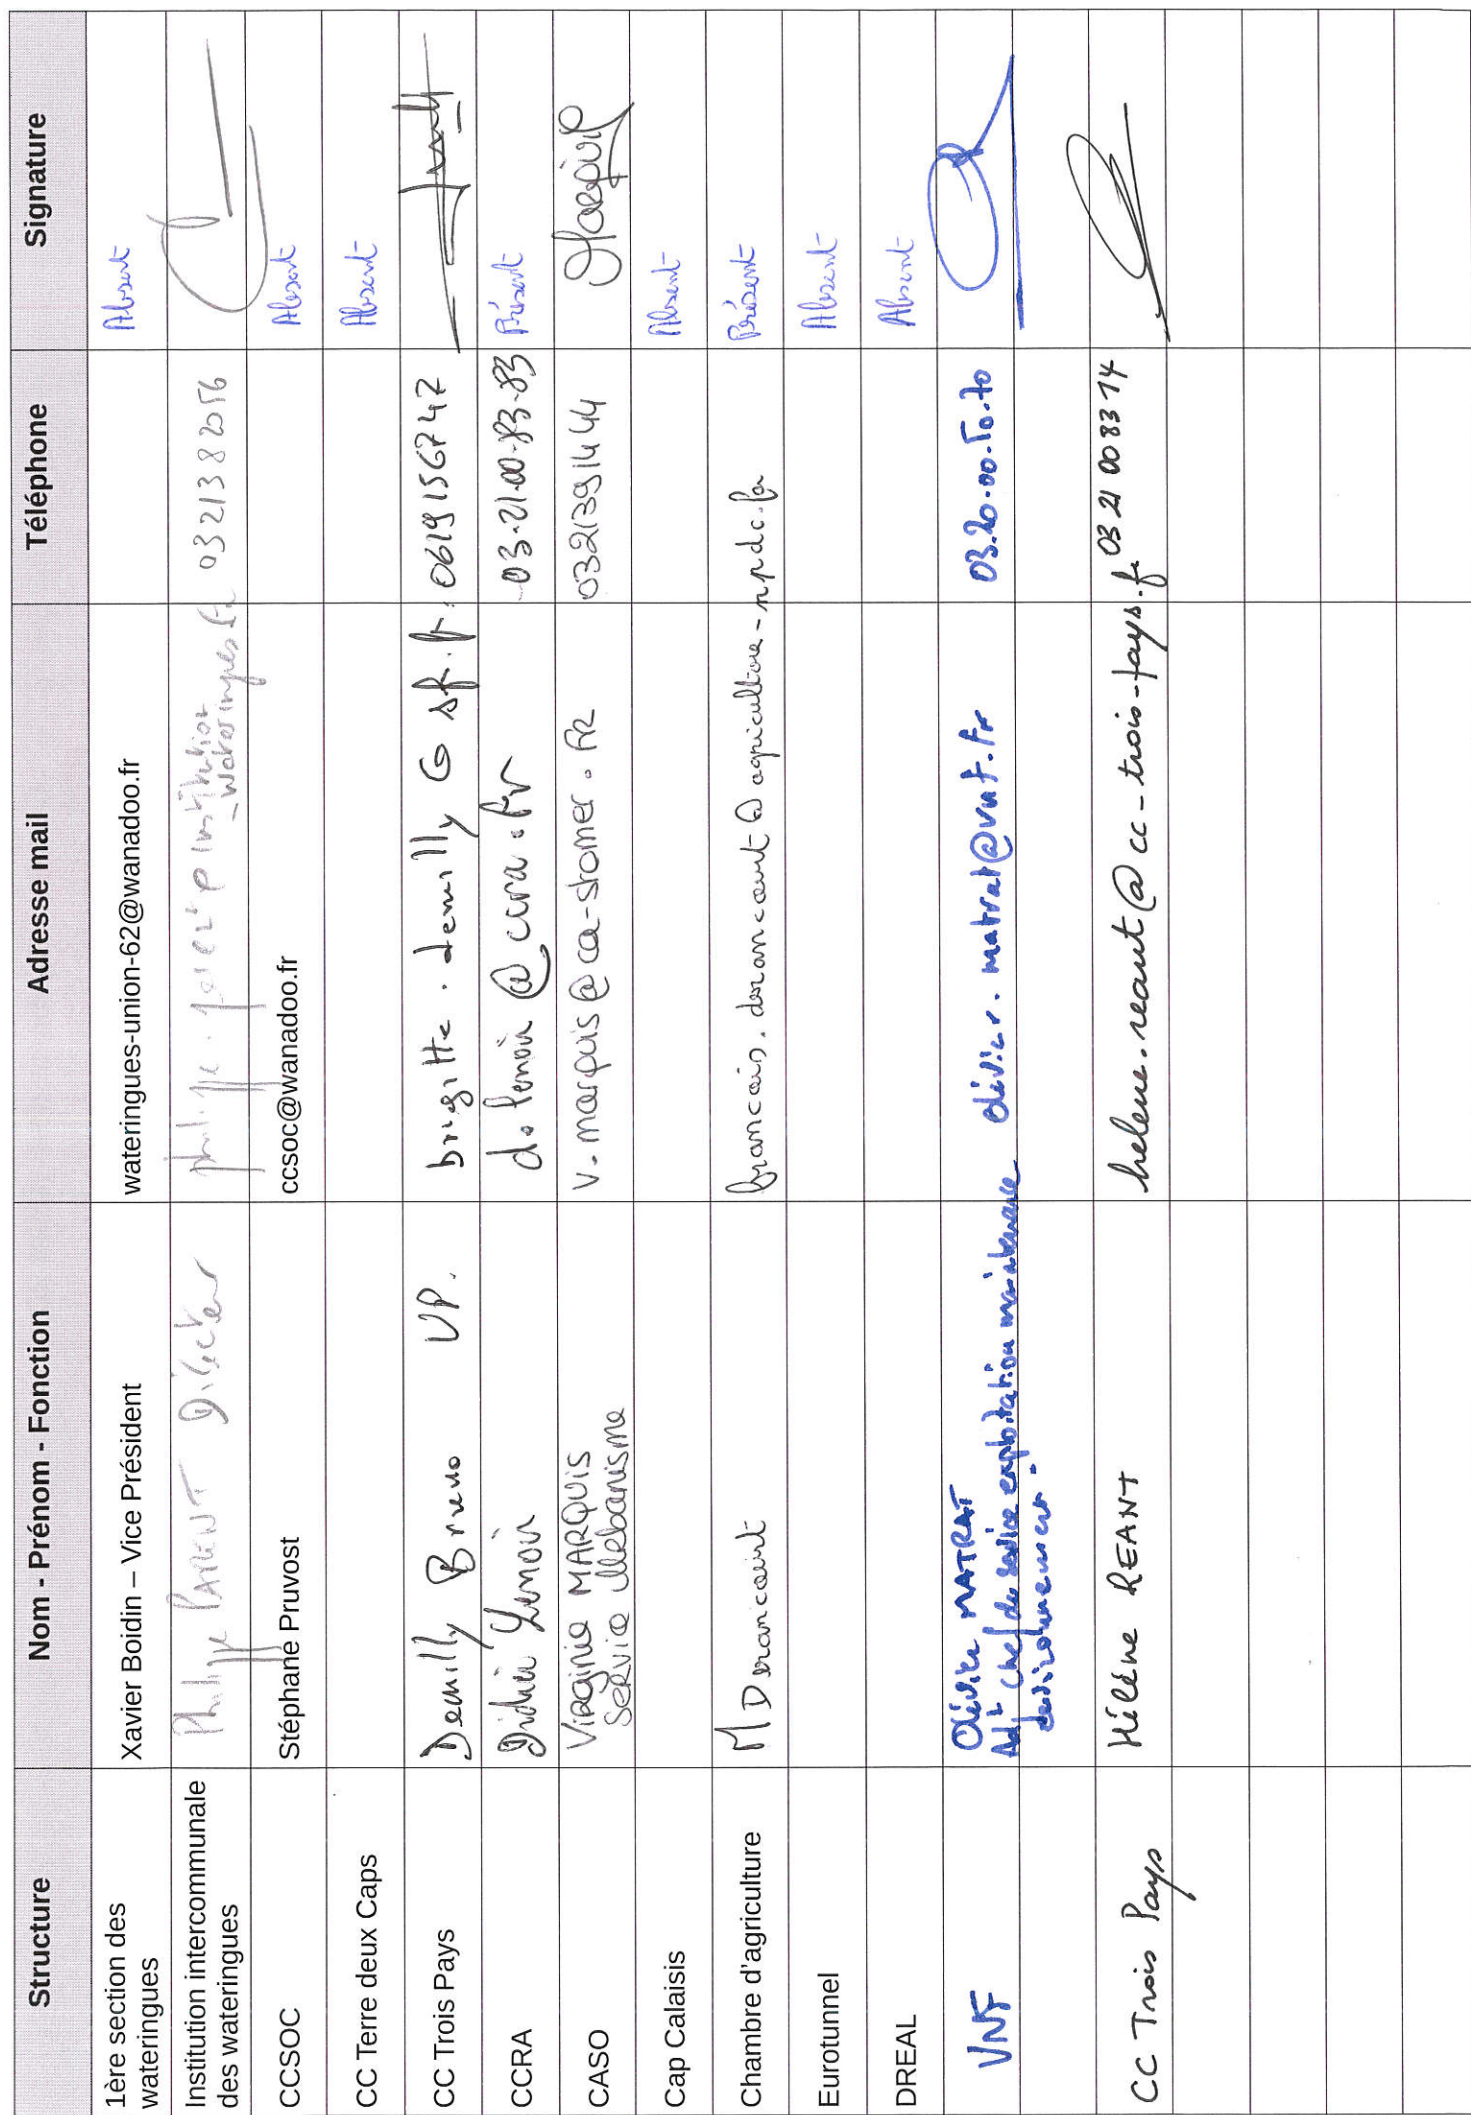 Structure Nom - Prénom - Fonction Adresse mail Téléphone Signature
1ère section des
wateringues
Xavier Boidin – Vice Président wateringues-union-62@wanadoo.fr Absent
Institution intercommunale
des wateringues
Philippe PARENT Directeur
0321382056
CCSOC Stéphane Pruvost ccsoc@wanadoo.fr Absent
CC Terre deux Caps Absent
CC Trois Pays Demilly Bruno VP. brigitte.demilly@sfr.fr 0619156747
CCRA Didier Lenoir d.lenoir@ccra.fr 03.21.00.83.83 Présent
CASO Virginie MARQUIS
Service Urbanisme
v.marquis@ca-stomer.fr 0321391444
Cap Calaisis Absent
Chambre d'agriculture M Derancourt francois.derancourt@agriculture-npdc.fr Présent
Eurotunnel Absent
DREAL Absent
VNF Olivier MATRAT
Adjt Chef de service exploitation maintenance
environnement.
olivier.matrat@vnf.fr 03.20.00.50.70
CC Trois Pays Hélène REANT helene.reant@cc-trois-pays.fr 03 21 00 83 14